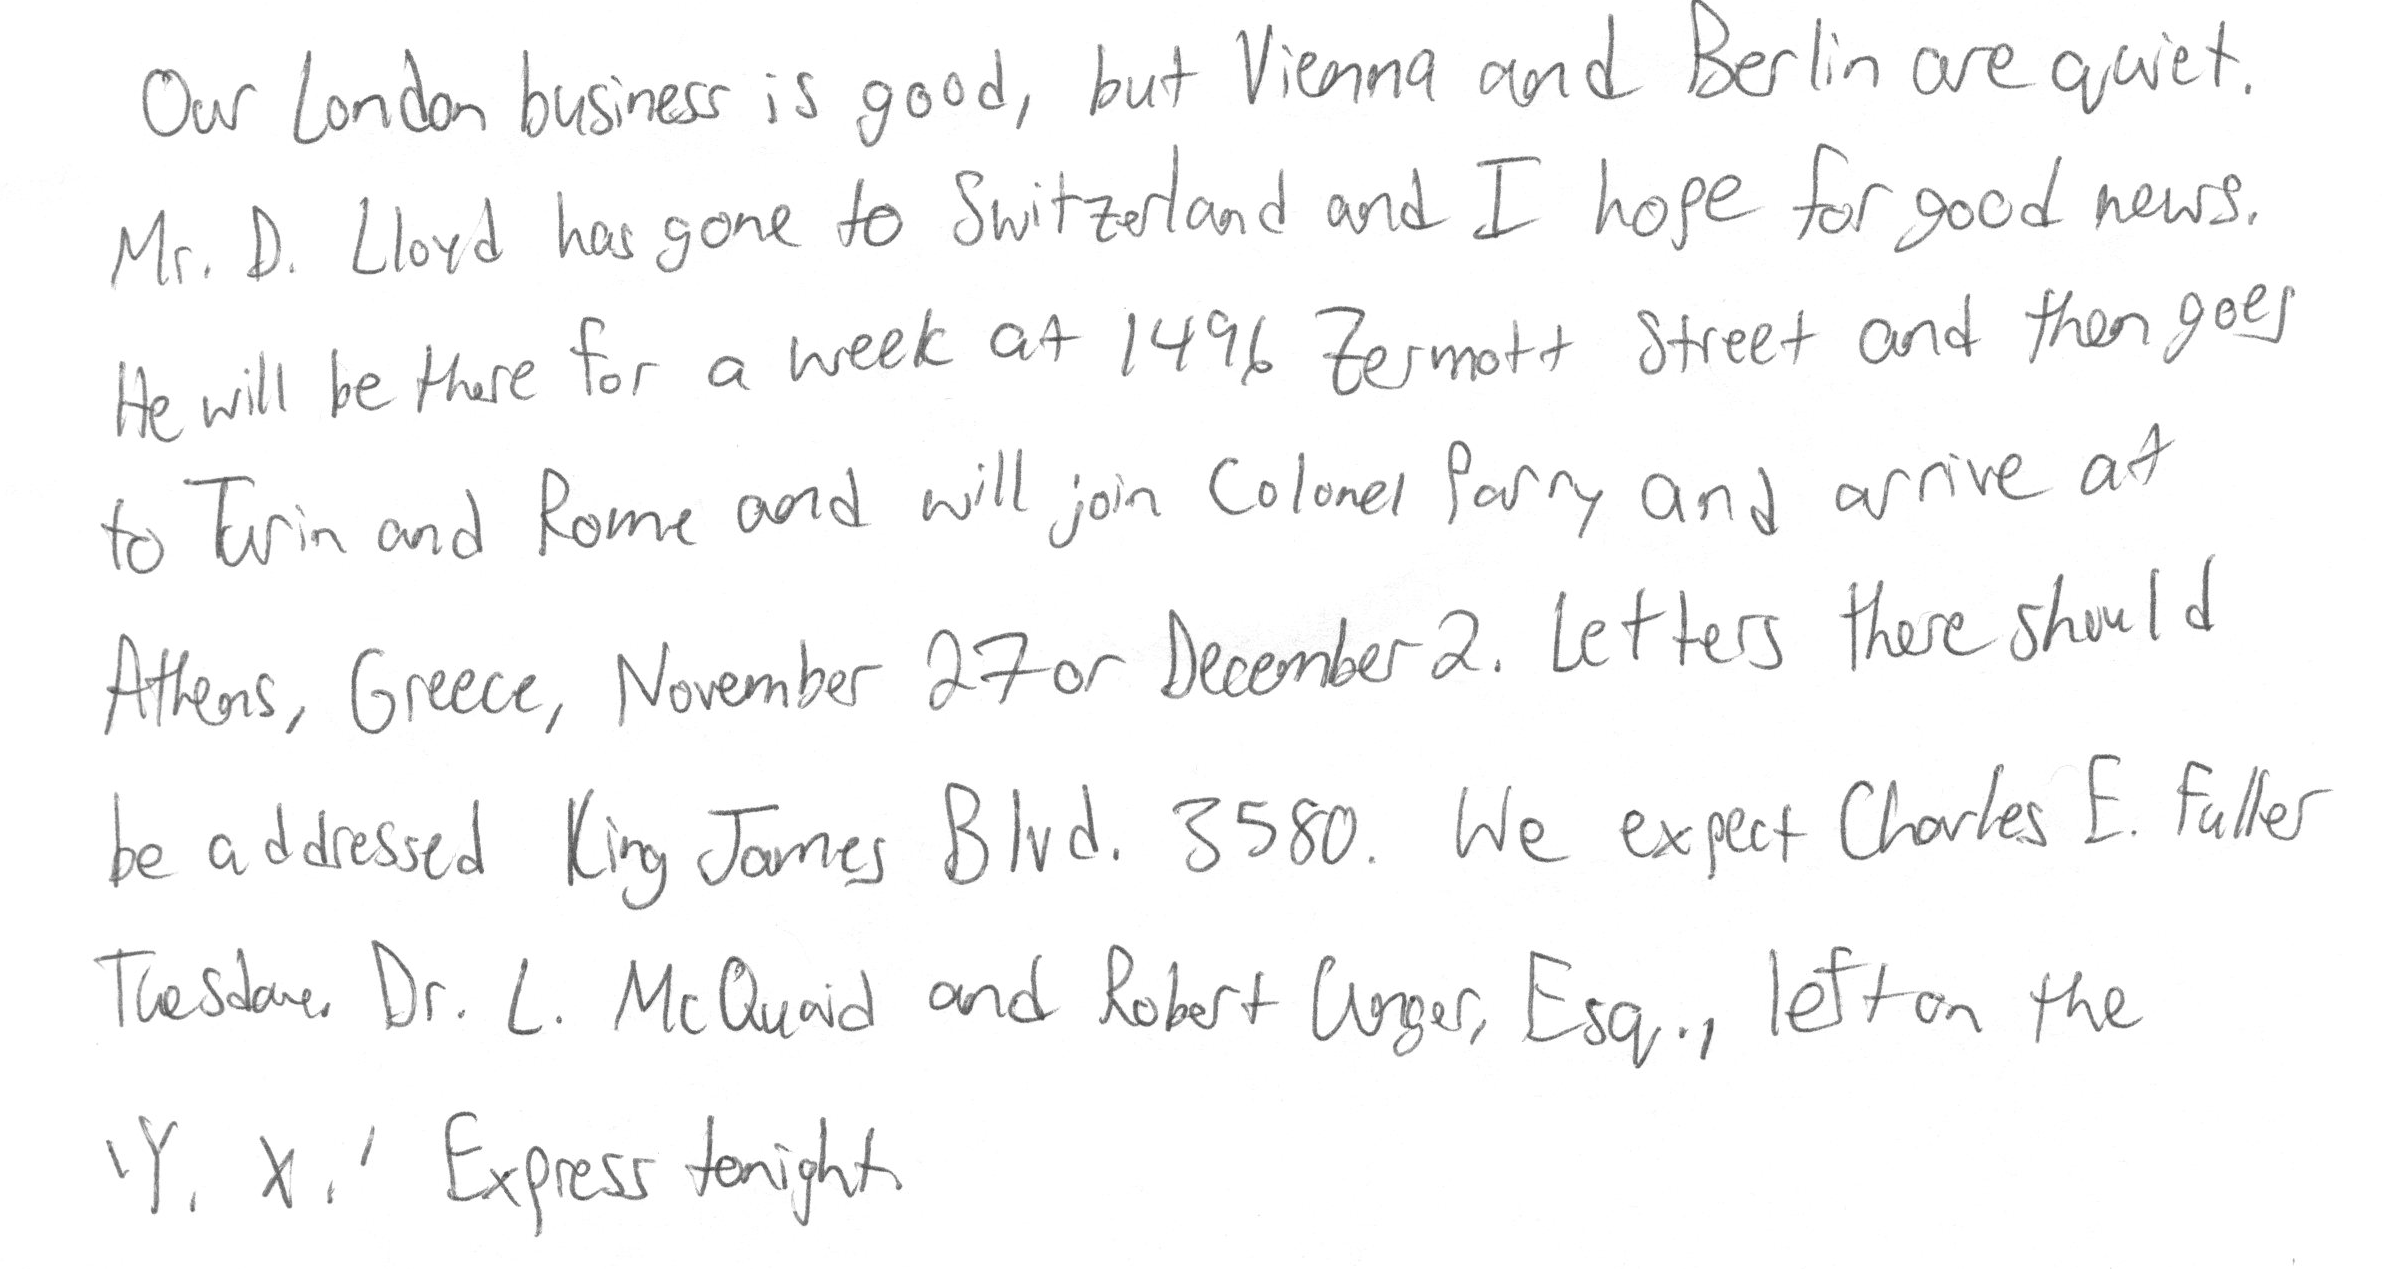 Our London business is good, but Vienna and Berlin are quiet.
Mr. D. Lloyd has gone to Switzerland and I hope for good news.
He will be there for a week at 1496 Zermott Street and then goes
to Turin and Rome and will join Colonel Parry and arrive at
Athens, Greece, November 27 or December 2. Letters there should
be addressed King James Blvd. 3580. We expect Charles E. Fuller
Tuesday. Dr. L. McQuaid and Robert Unger, Esq., left on the
'Y. X.' Express tonight.